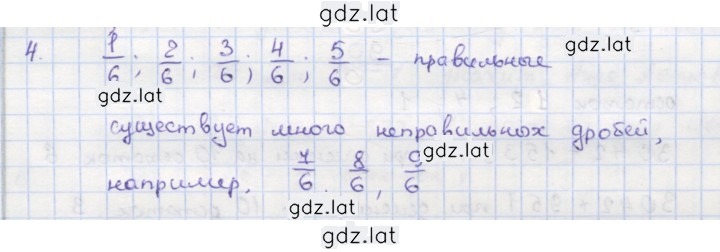 gdz.lat
4. 1/6; 2/6; 3/6; 4/6; 5/6 - правильные
gdz.lat
gdz.lat
существует много неправильных дробей,
gdz.lat
например, 7/6. 8/6, 9/6
gdz.lat
gdz.lat